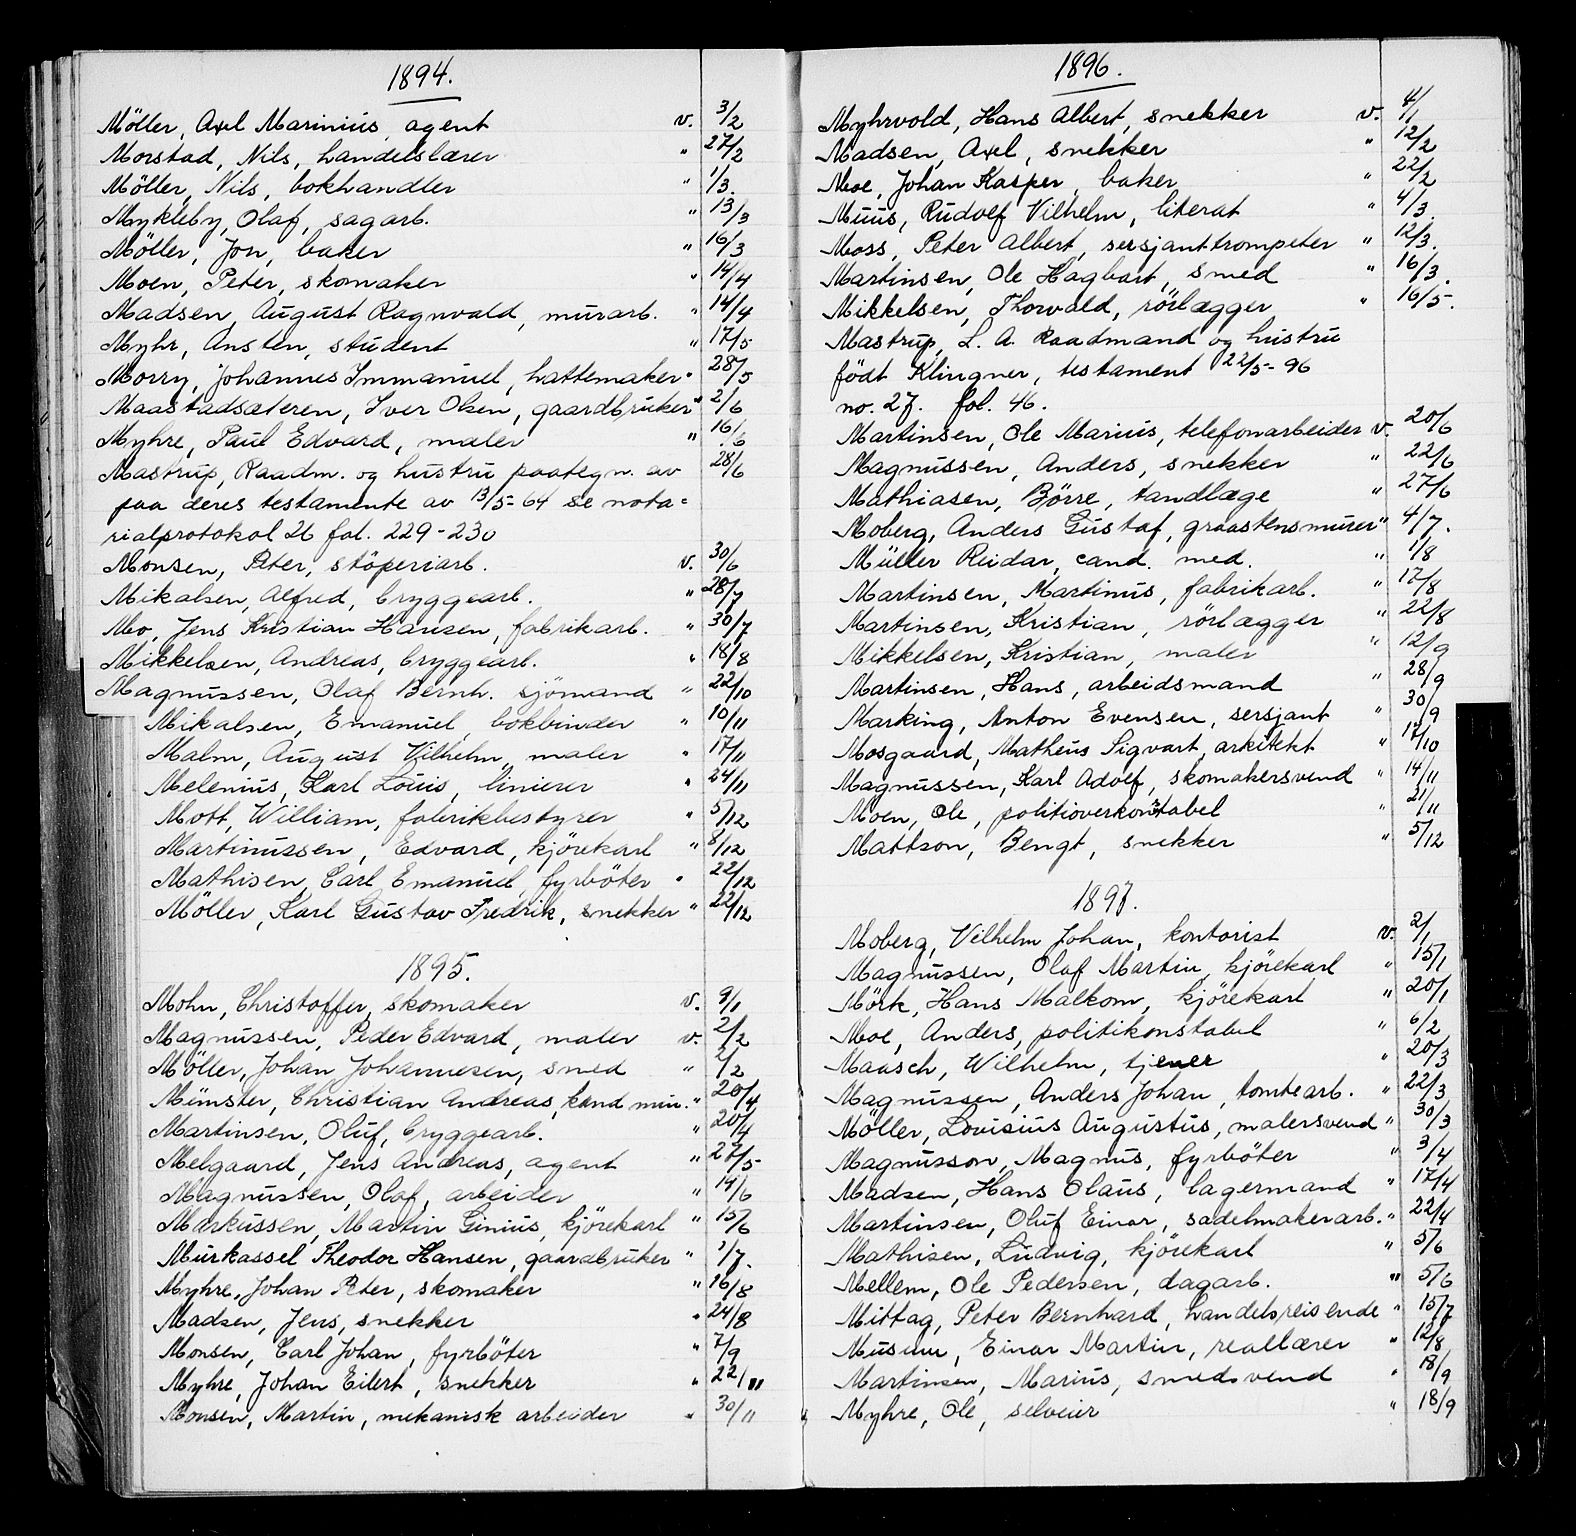 1894.
Möller, Axel Marinius, agent v. 3/2
Morstad, Nils, handelslærer " 27/2
Möller, Nils, bokhandler " 1/3.
Mykleby, Olaf, sagarb. " 13/3
Möller, Jon, baker " 16/3
Moen, Peter, skomaker " 14/4
Madsen, August Ragnvald, murarb. " 14/4
Myhr, Ansten, student " 17/5
Morry, Johannes Immanuel, hattemaker " 28/5
Maastadsæteren, Iver Olsen, gaardbruker " 2/6
Myhre, Paul Edvard, maler " 16/6
Mastrup, Raadm. og hustru paategn. av 28/6
paa deres testamente av 13/5-64 se nota=
rialprotokol 26 fol. 229-230
Monsen, Peter, stöperiarb. v. 30/6
Mikalsen, Alfred, bryggearb. " 28/7
Mo, Jens Kristian Hansen, fabrikarb. " 30/7
Mikkelsen, Andreas, bryggearb. " 18/8
Magnussen, Olaf Bernh. sjömand " 22/10
Mikalsen, Emanuel, bokbinder " 10/11
Malm, August Vilhelm, maler " 17/11
Melenius, Karl Louis, linierer " 24/11
Mott, William, fabrikbestyrer " 5/12
Martinussen, Edvard, kjörekarl " 8/12
Mathisen, Carl Emanuel, fyrböter " 22/12
Möller, Karl Gustav Fredrik, snekker " 22/12
1895.
Mohn, Christoffer, skomaker v. 9/1
Magnussen, Peder Edvard, maler v. 2/2
Möller, Johan Johannesen, smed " 2/2
Münster, Christian Andreas, kand min. " 20/4
Martinsen, Oluf, bryggearb. " 20/4
Melgaard, Jens Andreas, agent " 27/5
Magnussen, Olaf, arbeider " 14/6
Markussen, Martin Ginius, kjörekarl " 15/6
Murkassel Theodor Hansen, gaardbruker " 1/7.
Myhre, Johan Peter, skomaker " 16/8
Madsen, Jens, snekker " 24/8
Monsen, Carl Johan, fyrböter " 7/9
Myhre, Johan Eilert, snekker " 22/11
Monsen, Martin, mekanisk arbeider " 30/11
1896.
Myhrvold, Hans Albert, snekker v. 4/1
Madsen, Axel, snekker " 12/2
Moe, Johan Kasper, baker " 22/2
Muus, Rudolf Vilhelm, literat " 4/3.
Moss, Peter Albert, sersjanttrompeter " 12/3.
Martinsen, Ole Hagbart, smed " 16/3.
Mikkelsen, Thorvald, rörlægger " 16/5.
Mastrup, L. A. Raadmand og hustru
födt Klingner, testament 22/5-96
no. 27. fol. 46.
Martinsen, Ole Marius, telefonarbeider v. 20/6
Magnussen, Anders, snekker " 22/6
Mathiasen, Börre, tandlæge " 27/6
Moberg, Anders Gustaf, graastensmurer " 4/7.
Müller Reidar, cand. med. " 1/8
Martinsen, Martinus, fabrikarb. " 17/8
Martinsen, Kristian, rörlægger " 22/8
Mikkelsen, Kristian, maler " 12/9
Martinsen, Hans, arbeidsmand " 28/9
Marking, Anton Evensen, sersjant " 30/9
Mosgaard, Matheus Sigvart, arkitekt " 17/10
Magnussen, Karl Adolf, skomakersvend " 14/11
Moen, Ole, politioverkonstabel " 21/11
Mattson, Bengt, snekker " 5/12
1897.
Moberg, Vilhelm Johan, kontorist v. 2/1
Magnussen, Olaf Martin, kjörekarl " 15/1
Mörk, Hans Malkom, kjörekarl " 20/1
Moe, Anders, politikonstabel " 6/2
Maasch, Wilhelm, tjener " 20/3
Magnussen, Anders Johan, tomtearb. " 22/3
Möller, Lovisius Augustus, malersvend " 30/3
Magnusson, Magnus, fyrböter " 3/4
Madsen, Hans Olaus, lagermand " 17/4
Martinsen, Oluf Einar, sadelmakerarb. " 22/4
Mathisen, Ludvig, kjörekarl " 5/6
Mellem, Ole Pedersen, dagarb. " 5/6
Mittag, Peter Bernhard, handelsreisende " 15/7
Musum, Einar Martin, reallærer " 12/8
Martinsen, Marius, smedsvend " 18/9
Myhre, Ole, selveier " 18/9